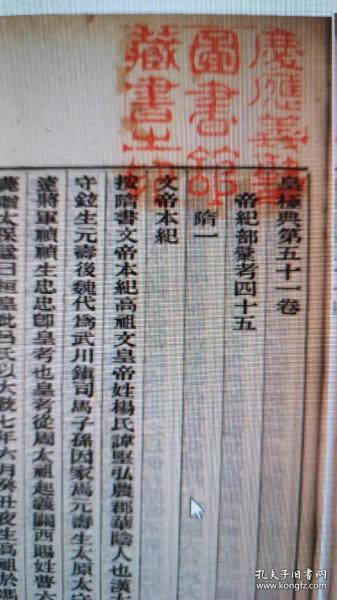 慶應義塾
圖書館
藏書之印
皇極典第五十一卷
帝紀部彙考四十五
隋一
文帝本紀
按隋書文帝本紀高祖文皇帝姓楊氏諱堅弘農郡華陰人也漢太
守鉉生元壽後魏代爲武川鎭司馬子孫因家焉元壽生太原太守
將軍禎禎生忠忠卽皇考也皇考從周太祖起義關西賜姓普六
贈太保諡曰桓皇妣呂氏以大統七年六月癸丑夜生高祖於馮
孔夫子旧书网
www.kongfz.com